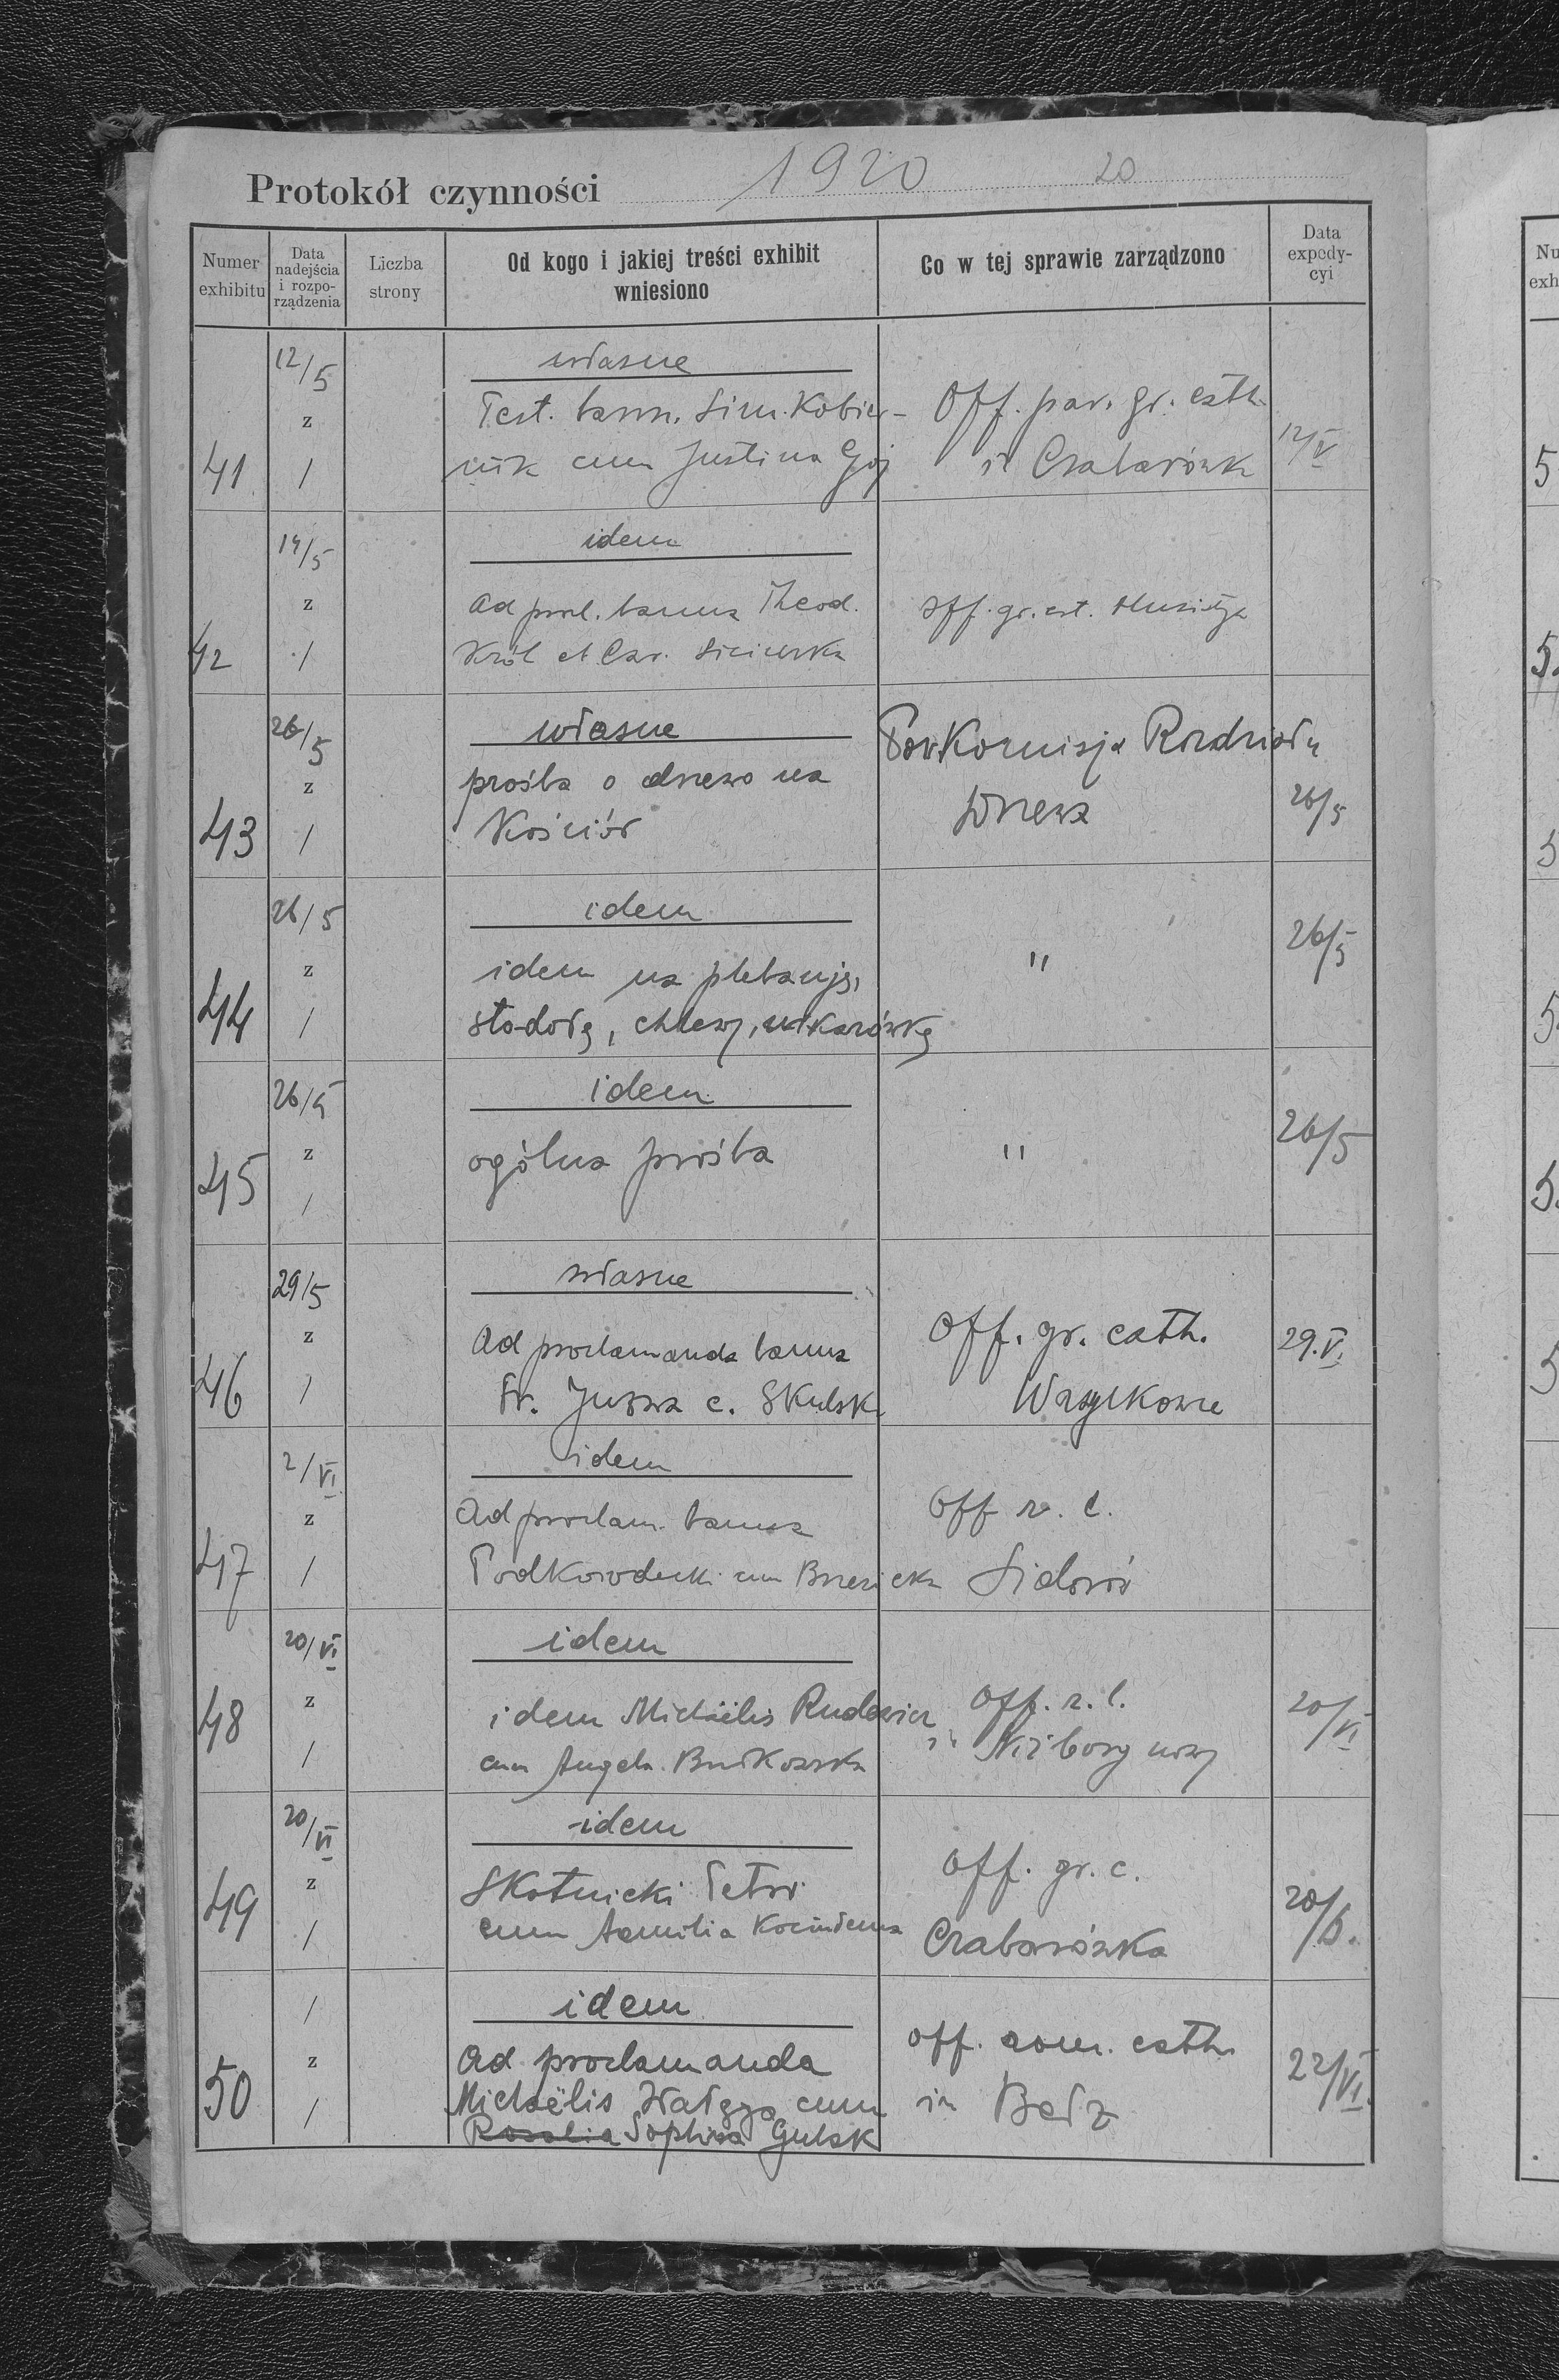 Protokół czynności 1920 20
Numer exhibitu
Data nadejścia i rozporządzenia
Liczba strony
Od kogo i jakiej treści exhibit wniesiono
Co w tej sprawie zarządzono
Data expedycyi
12/5
własne
Test. bann. Sim. Kobier-
Off. par. gr. cath.
z
41 / nik cum Justina Goj
in Czabarówka
12/V
14/5
idem
z
Ad procl. banna Theod.
Off. gr. cat.
42 / Król et Car.
26/5
własne
Pow Komisja Rozdziału
z
prośba o drzewo na
Drzewa
26/5
43 / Kościół
26/5
idem
z
idem na plebanję,
"
26/5
44 / stodołę, chlewy, wikarówkę
26/5
idem
z
ogólna prośba
"
26/5
45 /
29/5
własne
z
Ad proclamanda banna
Off. gr. cath.
29.V.
46 / Fr. c. Skulska
2/VI
idem
z
Ad proclam. banna
Off r. c.
47 / cum
Sidorów
20/VI
idem
z
idem Michaëlis Rudewicz
Off. r. l.
20/VI
48 / cum Angela
in Niżborg nowy
20/VI
idem
z
Skotnicki Petri
Off. gr. c.
20/6.
49 / cum
Czabarówka
/
idem
z
Ad proclamanda
off. rom. cath.
22/VI.
50 / Michaëlis cum
in Bełz
Rosalia Sophia Gulak
Nu
exh
5
5.
5
5.
5.
5